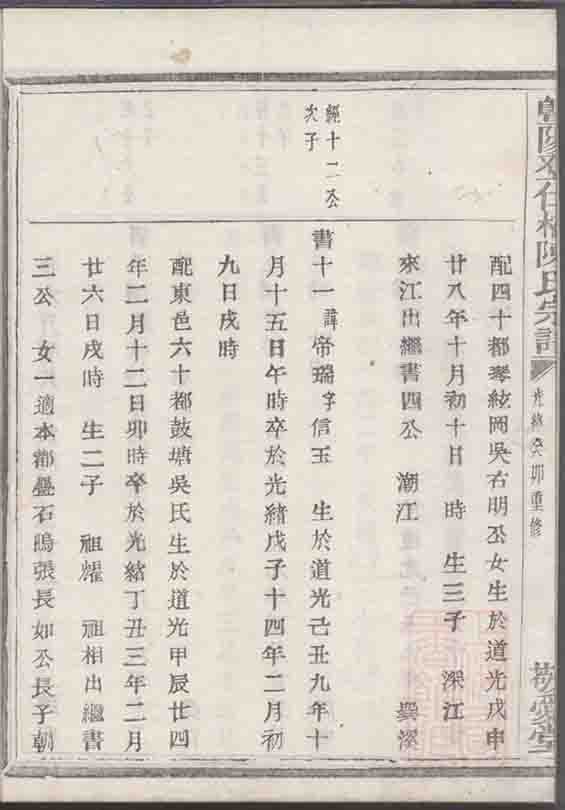 陽
陳氏宗譜
光緒癸卯重修
敬愛堂
配四十都琴絃岡吳右明公女生於道光戊申
廿八年十月初十日 時 生三子 深江
來江出繼書四公 潮江
經十二公
次子
書十一諱帝瑞字信玉 生於道光己丑九年十
月十五日午時卒於光緒戊子十四年二月初
九日戌時
配東邑六十都鼓塘吳氏生於道光甲辰廿四
年二月十二日卯時卒於光緒丁丑三年二月
廿六日戌時 生二子 祖耀 祖相出繼書
三公 女一適本都疊石鴫張長如公長子朝